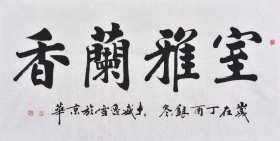 室雅蘭香
歲在丁酉銀冬 於京華